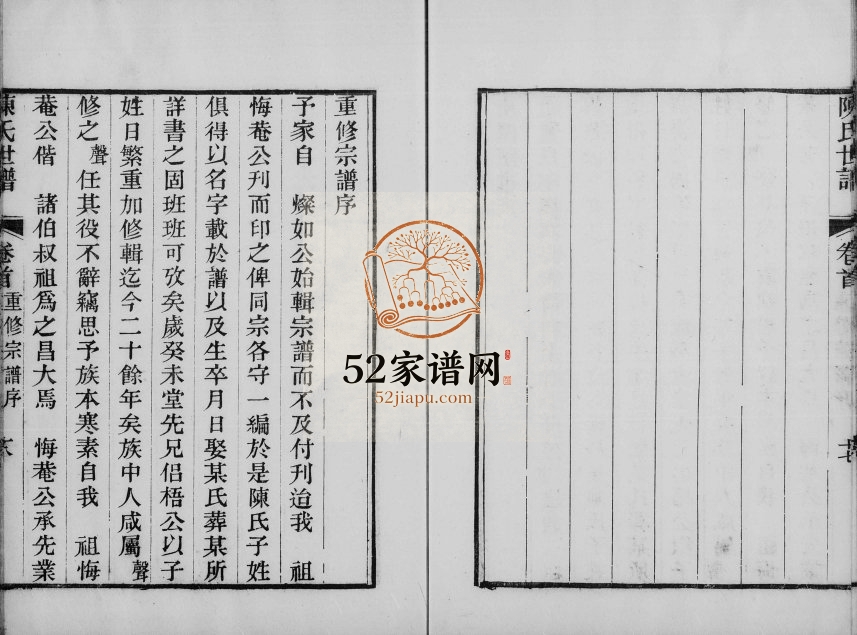 陳氏世譜
卷首
重修宗譜序
予家自　燦如公始輯宗譜而不及付刊迨我　祖
悔菴公刊而印之俾同宗各守一編於是陳氏子姓
俱得以名字載於譜以及生卒月日娶某氏葬某所
詳書之固班班可攷矣歲癸未堂先兄侣梧公以子
姓日繁重加修輯迄今二十餘年矣族中人咸屬聲
修之聲任其役不辭竊思予族本寒素自我　祖悔
菴公偕　諸伯叔祖爲之昌大焉　悔菴公承先業
陳氏世譜
卷首
重修宗譜序
52家谱网
52jiapu.com